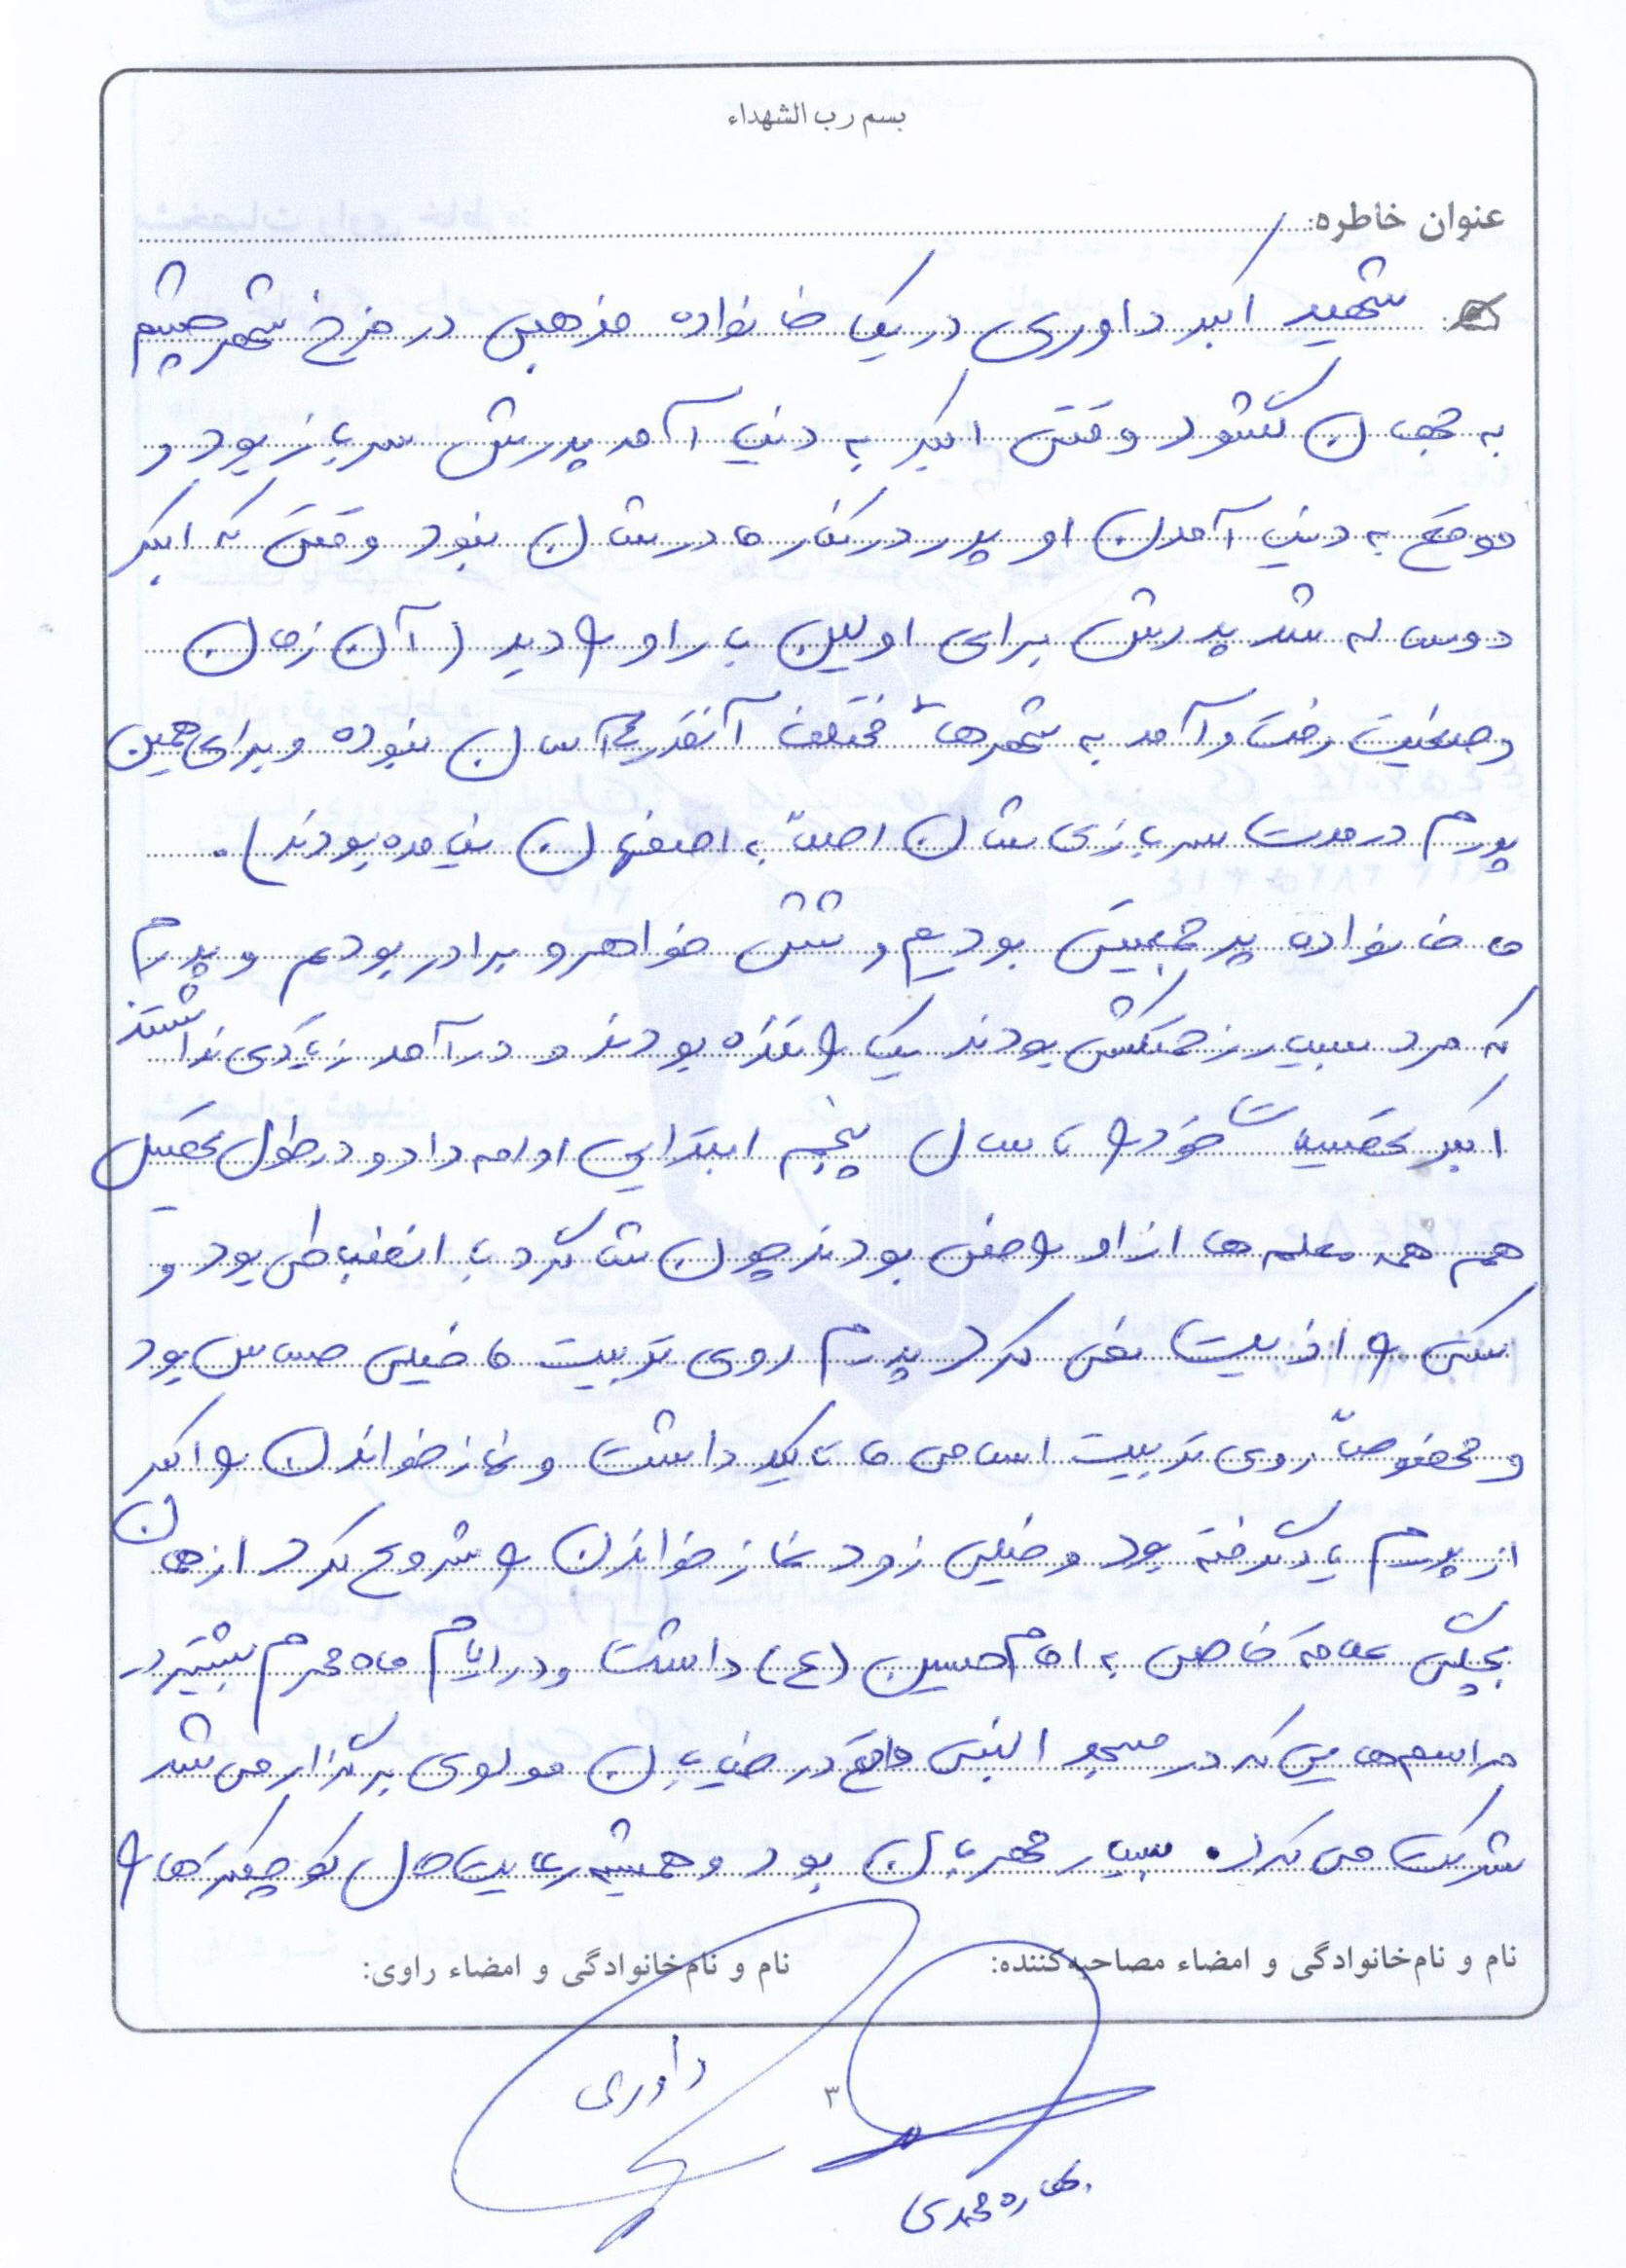 بسم رب الشهداء
عنوان خاطره:
شهید اکبر داوری در یک خانواده مذهبی در فرخ شهر چشم
به جهان گشود وقتی اکبر به دنیا آمد پدرش سرباز بود و
موقع به دنیا آمدن او پدر در کنار مادرشان نبود وقتی که اکبر
دوساله شد پدرش برای اولین بار او را دید (آن زمان
وضعیت رفت و آمد به شهرهای مختلف آنقدر آسان نبوده و برای همین
پدرم در مدت سربازی شان اصلاً به اصفهان نیامده بودند).
ما خانواده پر جمعیتی بودیم و شش خواهر و برادر بودیم و پدرم
که مرد بسیار زحمتکشی بودند یک راننده بودند و درآمد زیادی نداشتند
اکبر تحصیلات خود را تا سال پنجم ابتدایی ادامه داد و در طول تحصیل
هم همه معلم ها از او راضی بودند چون شاگرد با انضباطی بود و
کسی را اذیت نمی کرد پدرم روی تربیت ما خیلی حساس بود
و مخصوصاً روی تربیت اسلامی ما تاکید داشت و نماز خواندن را اکبر
از پدرم یاد گرفته بود و خیلی زود نماز خواندن را شروع کرد از همان
بچگی علاقه خاصی به امام حسین (ع) داشت و در ایام ماه محرم بیشتر در
مراسم هایی که در مسجد النبی واقع در خیابان مولوی برگزار می شد
شرکت می کرد. بسیار مهربان بود و همیشه رعایت حال کوچکترها را
نام و نام‌خانوادگی و امضاء مصاحبه‌کننده: نام و نام‌خانوادگی و امضاء راوی:
داوری
۳
بهاره محمدی